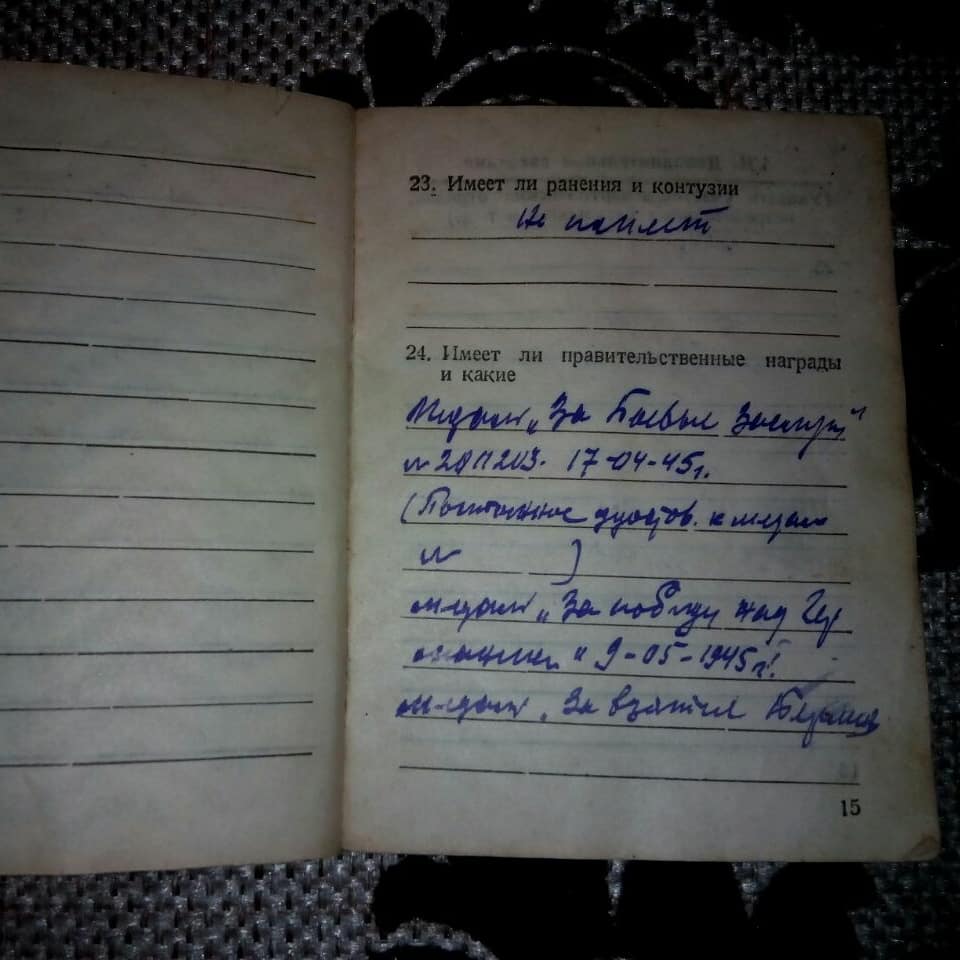 23. Имеет ли ранения и контузии
Не имеет
24. Имеет ли правительственные награды
и какие
Медаль „За Боевые Заслуги"
17-04-45г.
удостов. к медали
№ )
медаль „За победу над Гер
манией" 9-05-1945г.
медаль „За взятие Берлина
15